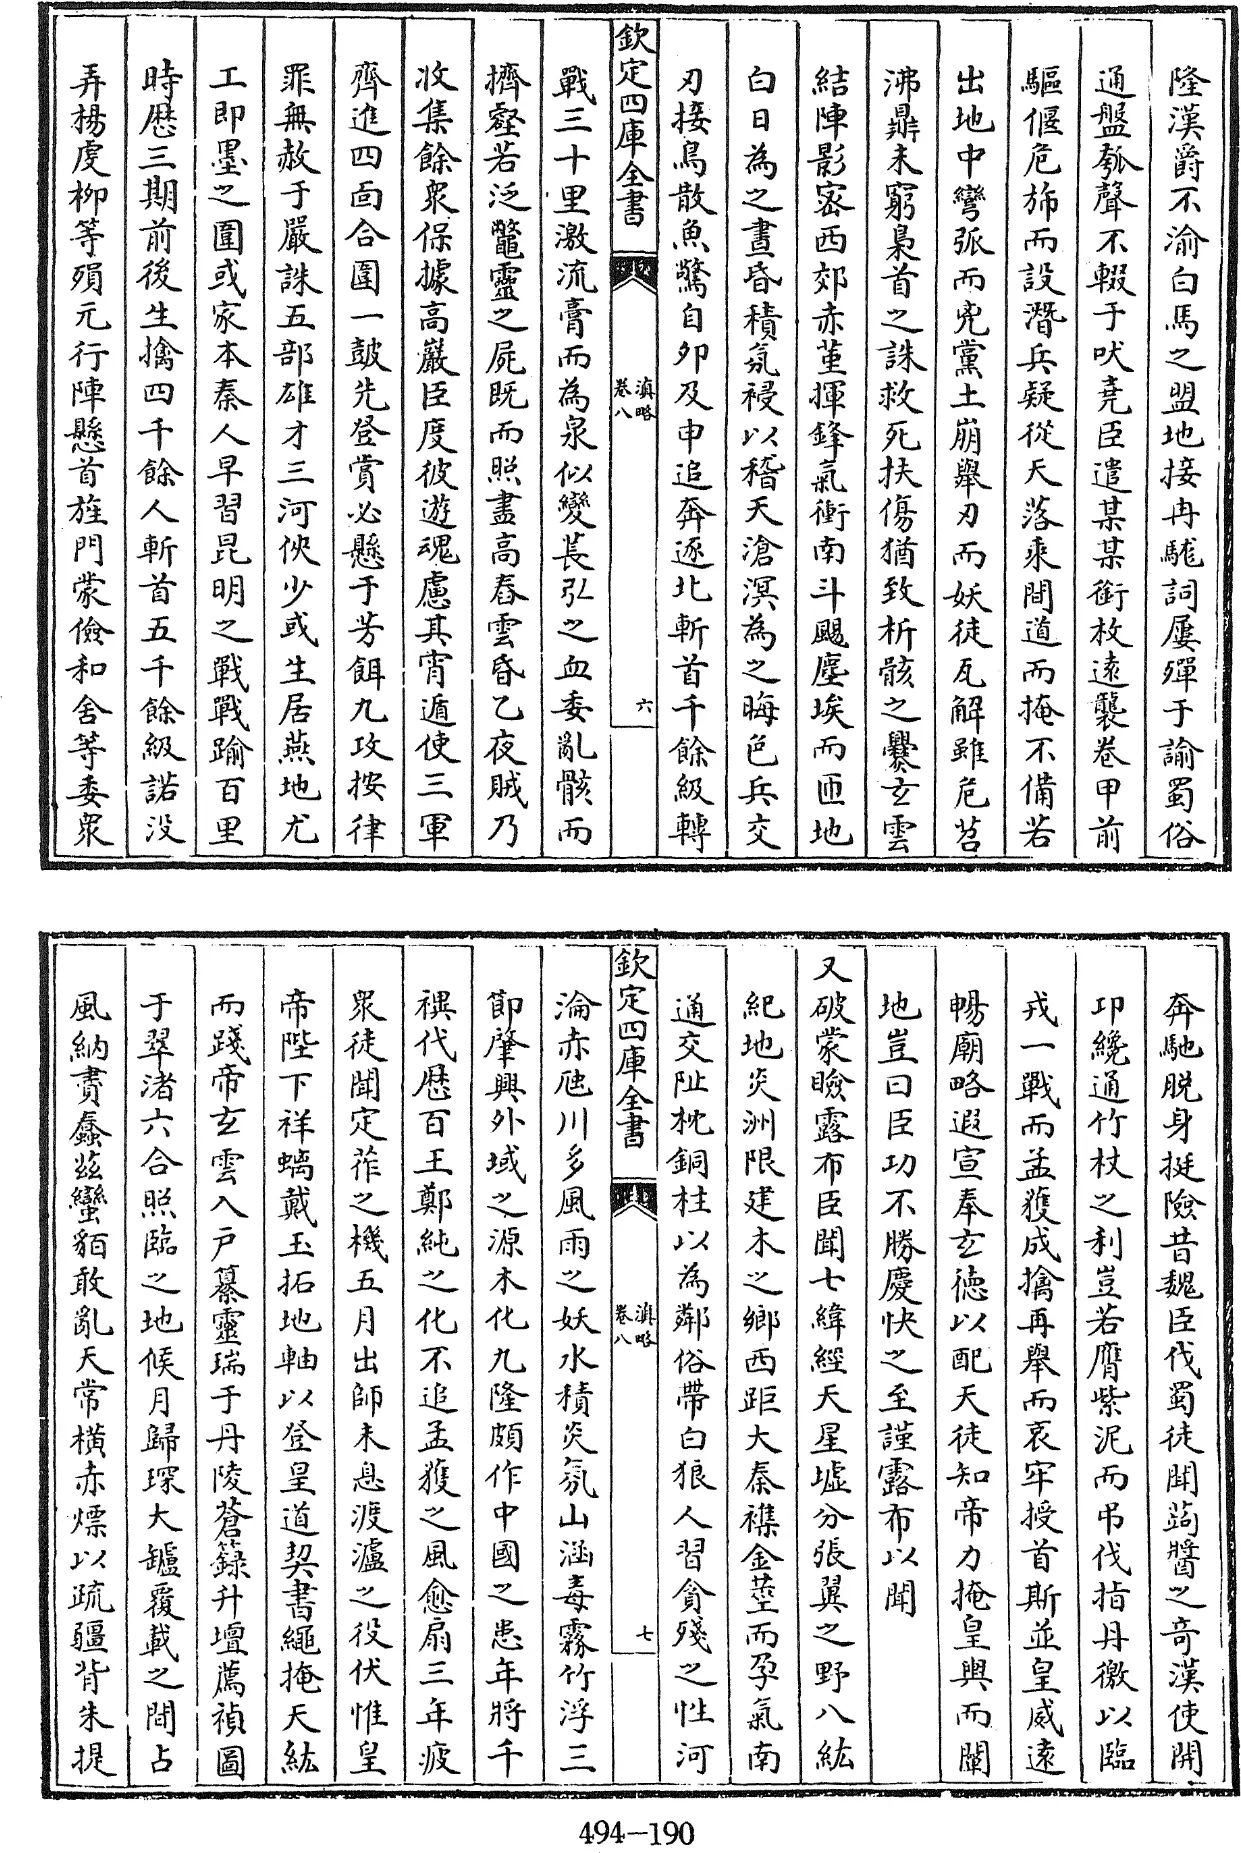 隆漢爵不渝白馬之盟地接冉駹詞屢殫于諭蜀俗
通盤瓠聲不輟于吠堯臣遣某某銜枚遠襲卷甲前
驅偃危旆而設潛兵疑從天落乘間道而掩不備若
出地中彎弧而兇黨土崩舉刃而妖徒瓦解雖危苕
沸鼎未窮梟首之誅救死扶傷猶致析骸之爨玄雲
結陣影密西郊赤堇揮鋒氣衝南斗颺塵埃而匝地
白日為之晝昏積氛祲以稽天滄溟為之晦色兵交
刃接鳥散魚驚自夘及申追奔逐北斬首千餘級轉
欽定四庫全書
滇略
卷八
六
戰三十里激流膏而為泉似變萇弘之血委亂骸而
擠壑若泛鼈靈之屍既而照盡高舂雲昏乙夜賊乃
收集餘衆保據高巖臣度彼遊魂慮其宵遁使三軍
齊進四面合圍一鼓先登賞必懸于芳餌九攻按律
罪無赦于嚴誅五部雄才三河俠少或生居燕地尤
工即墨之圍或家本秦人早習昆明之戰戰踰百里
時歴三期前後生擒四千餘人斬首五千餘級諾没
弄楊虔柳等殞元行陣懸首旌門蒙儉和舍等委衆
奔馳脱身挺險昔魏臣伐蜀徒聞蒟醬之奇漢使開
卭纔通竹杖之利豈若膺紫泥而弔伐指丹徼以臨
戎一戰而孟獲成擒再舉而哀牢授首斯並皇威遠
暢廟略遐宣奉玄徳以配天徒知帝力掩皇輿而闡
地豈曰臣功不勝慶快之至謹露布以聞
又破蒙瞼露布臣聞七緯經天星墟分張翼之野八紘
紀地炎洲限建木之鄉西距大秦襍金莖而孕氣南
通交阯枕銅柱以為鄰俗帶白狼人習貪殘之性河
欽定四庫全書
滇略
卷八
七
淪赤虺川多風雨之妖水積炎氛山涵毒霧竹浮三
節肇興外域之源木化九隆頗作中國之患年將千
禩代歴百王鄭純之化不追孟獲之風愈扇三年疲
衆徒聞定莋之機五月出師未息渡瀘之役伏惟皇
帝陛下祥螭戴玉拓地軸以登皇道契書繩掩天紘
而踐帝玄雲入戸纂靈瑞于丹陵蒼籙升壇薦禎圖
于翠渚六合照臨之地候月歸琛大鑪覆載之間占
風納賮蠢兹蠻貊敢亂天常横赤熛以疏疆背朱提
494-190